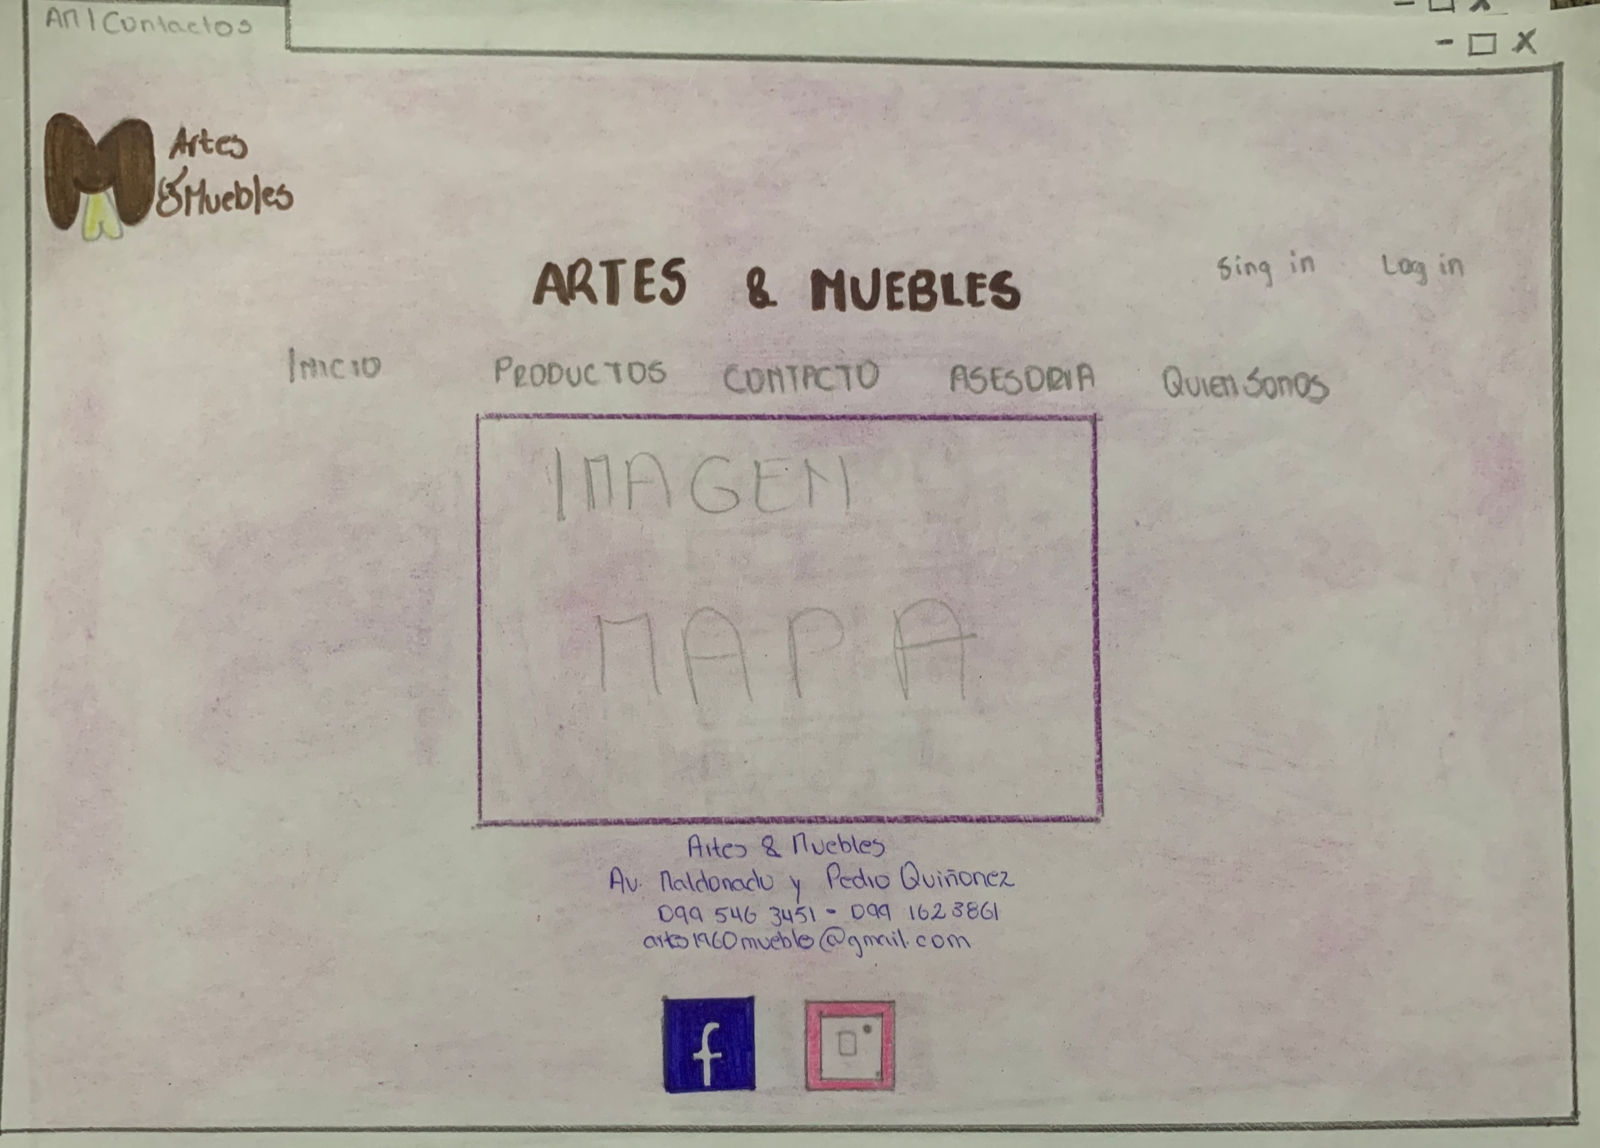 AM|Contactos
Artes
& Muebles
ARTES & MUEBLES
Sing in Log in
INICIO PRODUCTOS CONTACTO ASESORIA QUIEN SOMOS
IMAGEN
MAPA
Artes & Muebles
Av. Maldonado y Pedro Quiñonez
099 546 3451 - 099 1623861
artes1960mueble@gmail.com
f